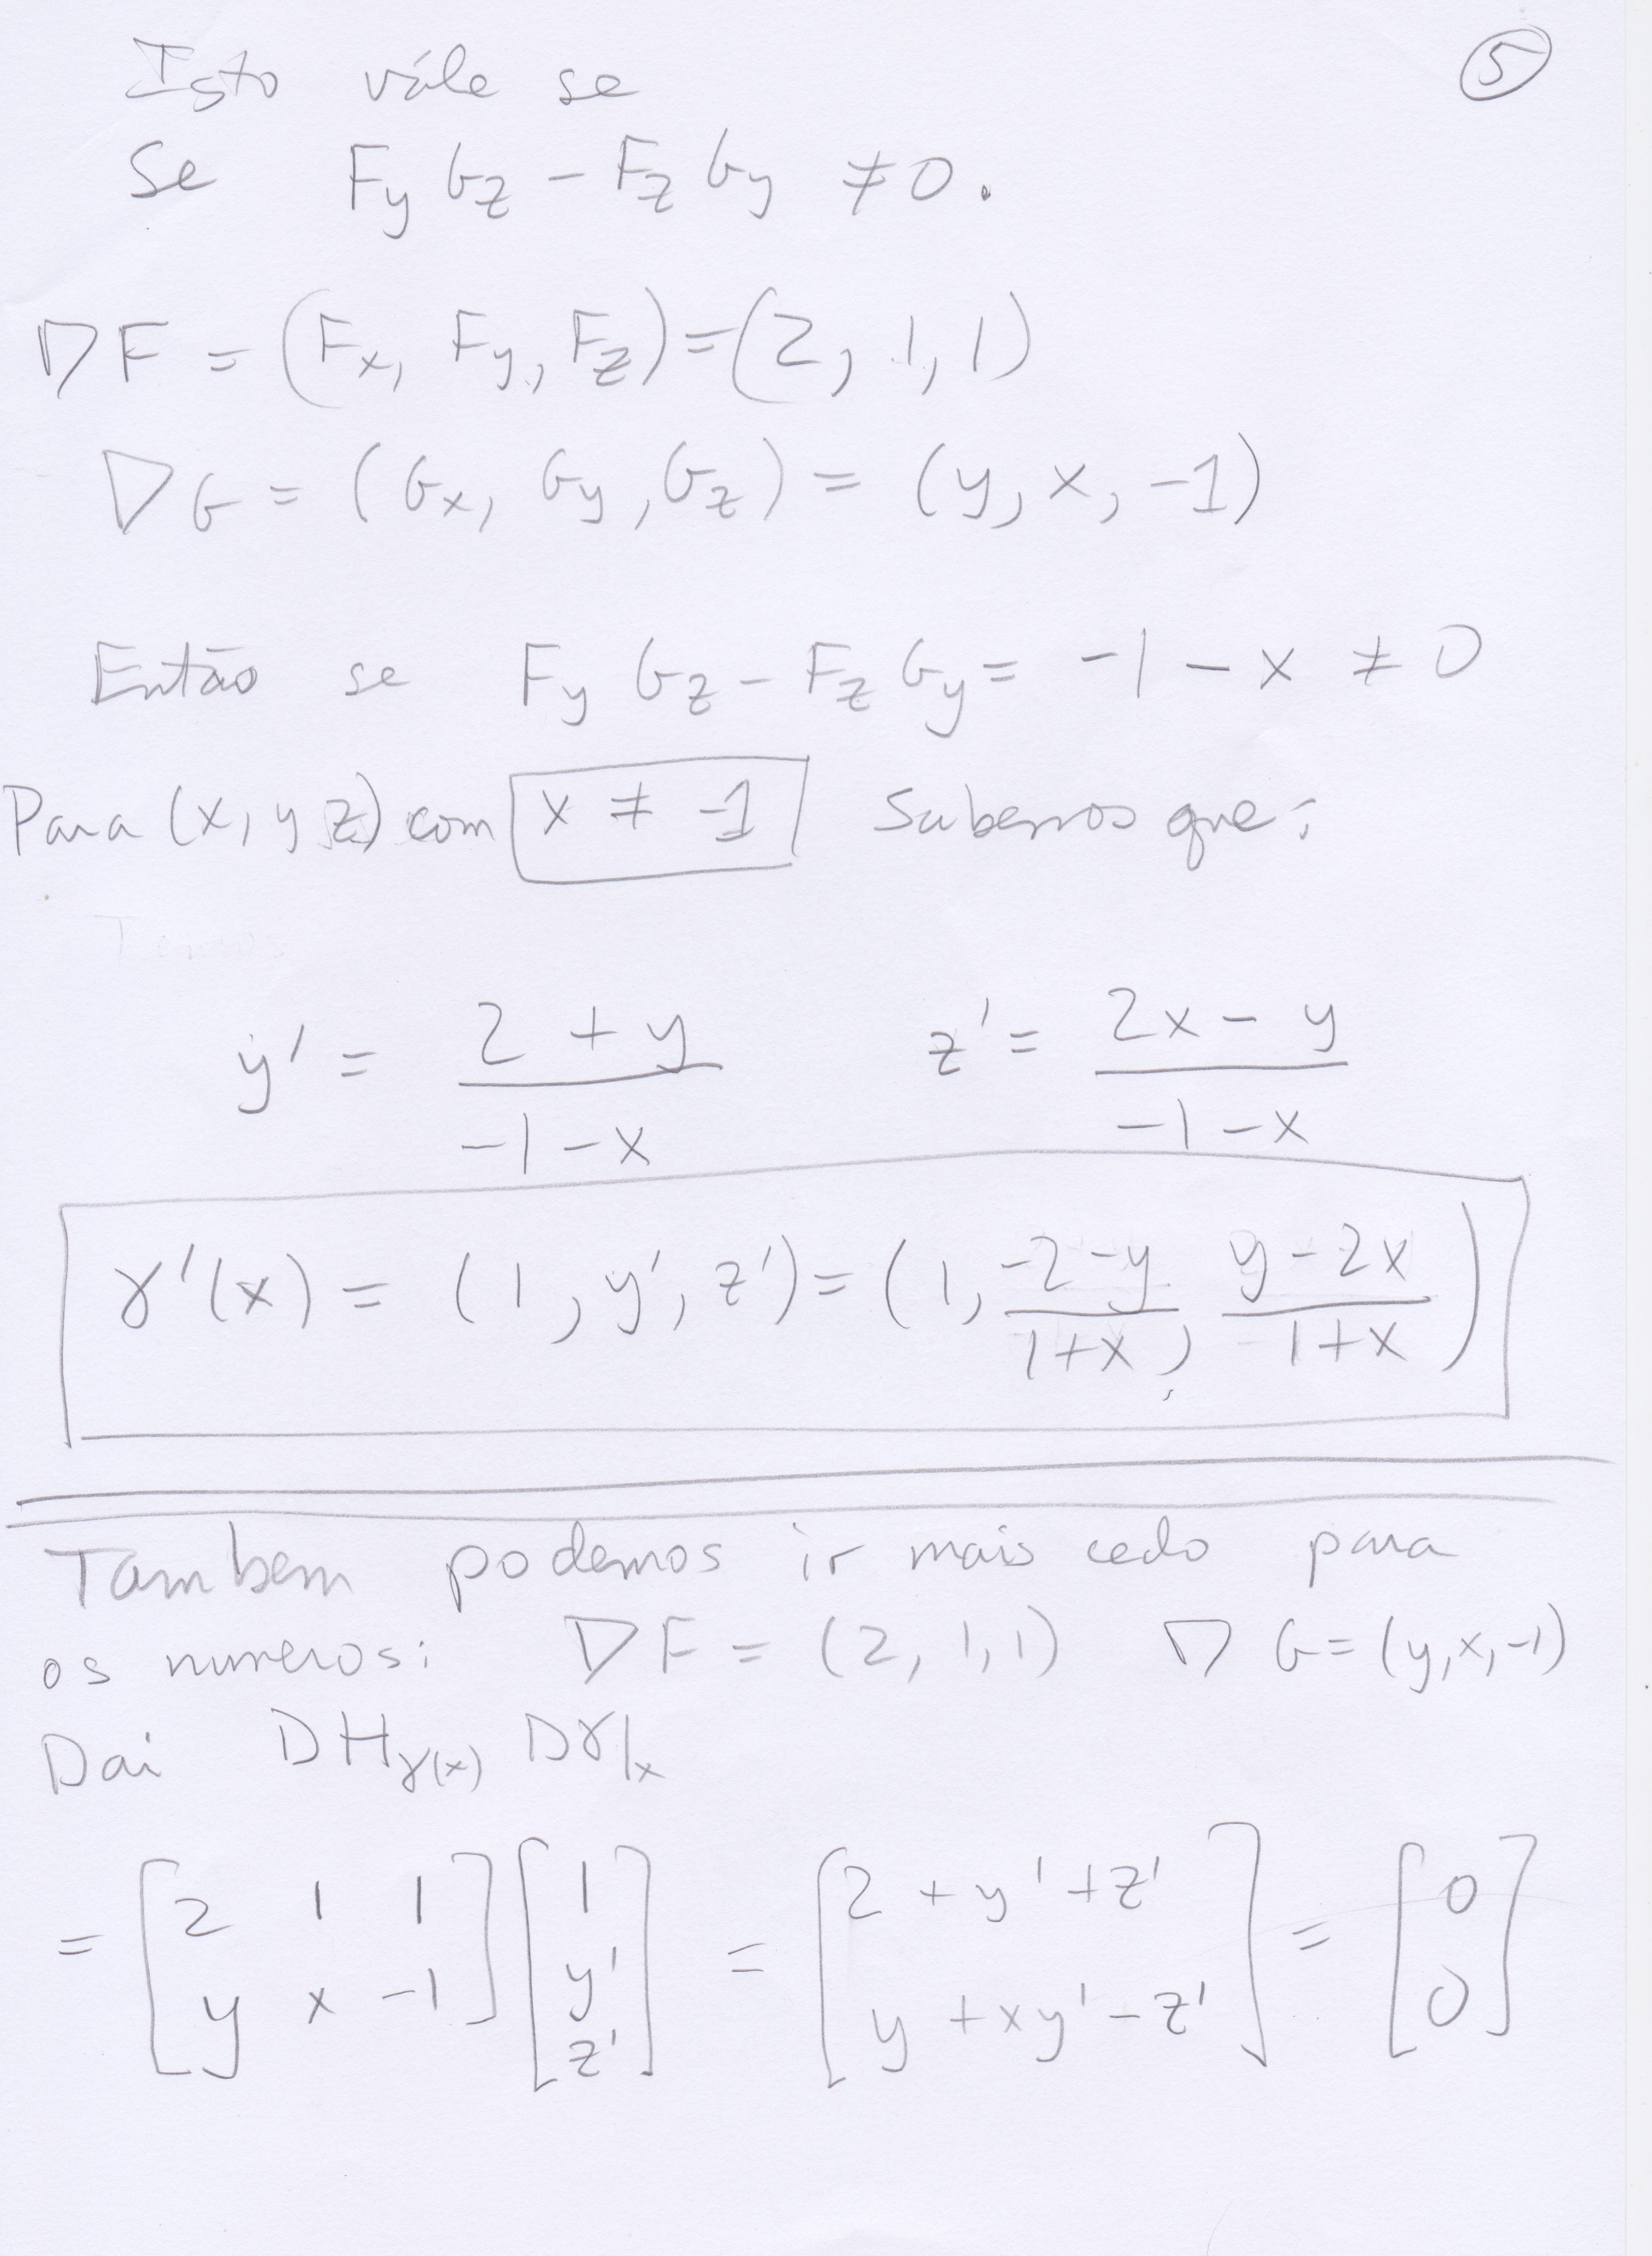 ⑤
Isto vále se
Se Fy Gz - Fz Gy ≠ 0.
∇F = (Fx, Fy, Fz) = (2, 1, 1)
∇G = (Gx, Gy, Gz) = (y, x, -1)
Então se Fy Gz - Fz Gy = -1 - x ≠ 0
Para (x, y z) com x ≠ -1 Sabemos que:
Temos
y' = (2 + y)/(-1 - x) z' = (2x - y)/(-1 - x)
γ'(x) = (1, y', z') = (1, (-2 - y)/(1+x), (y - 2x)/(1+x))
Tambem podemos ir mais cedo para
os numeros: ∇F = (2, 1, 1) ∇G = (y, x, -1)
Dai DH_γ(x) Dγ|x
= [2 1 1; y x -1] [1; y'; z'] = [2 + y' + z'; y + xy' - z'] = [0; 0]